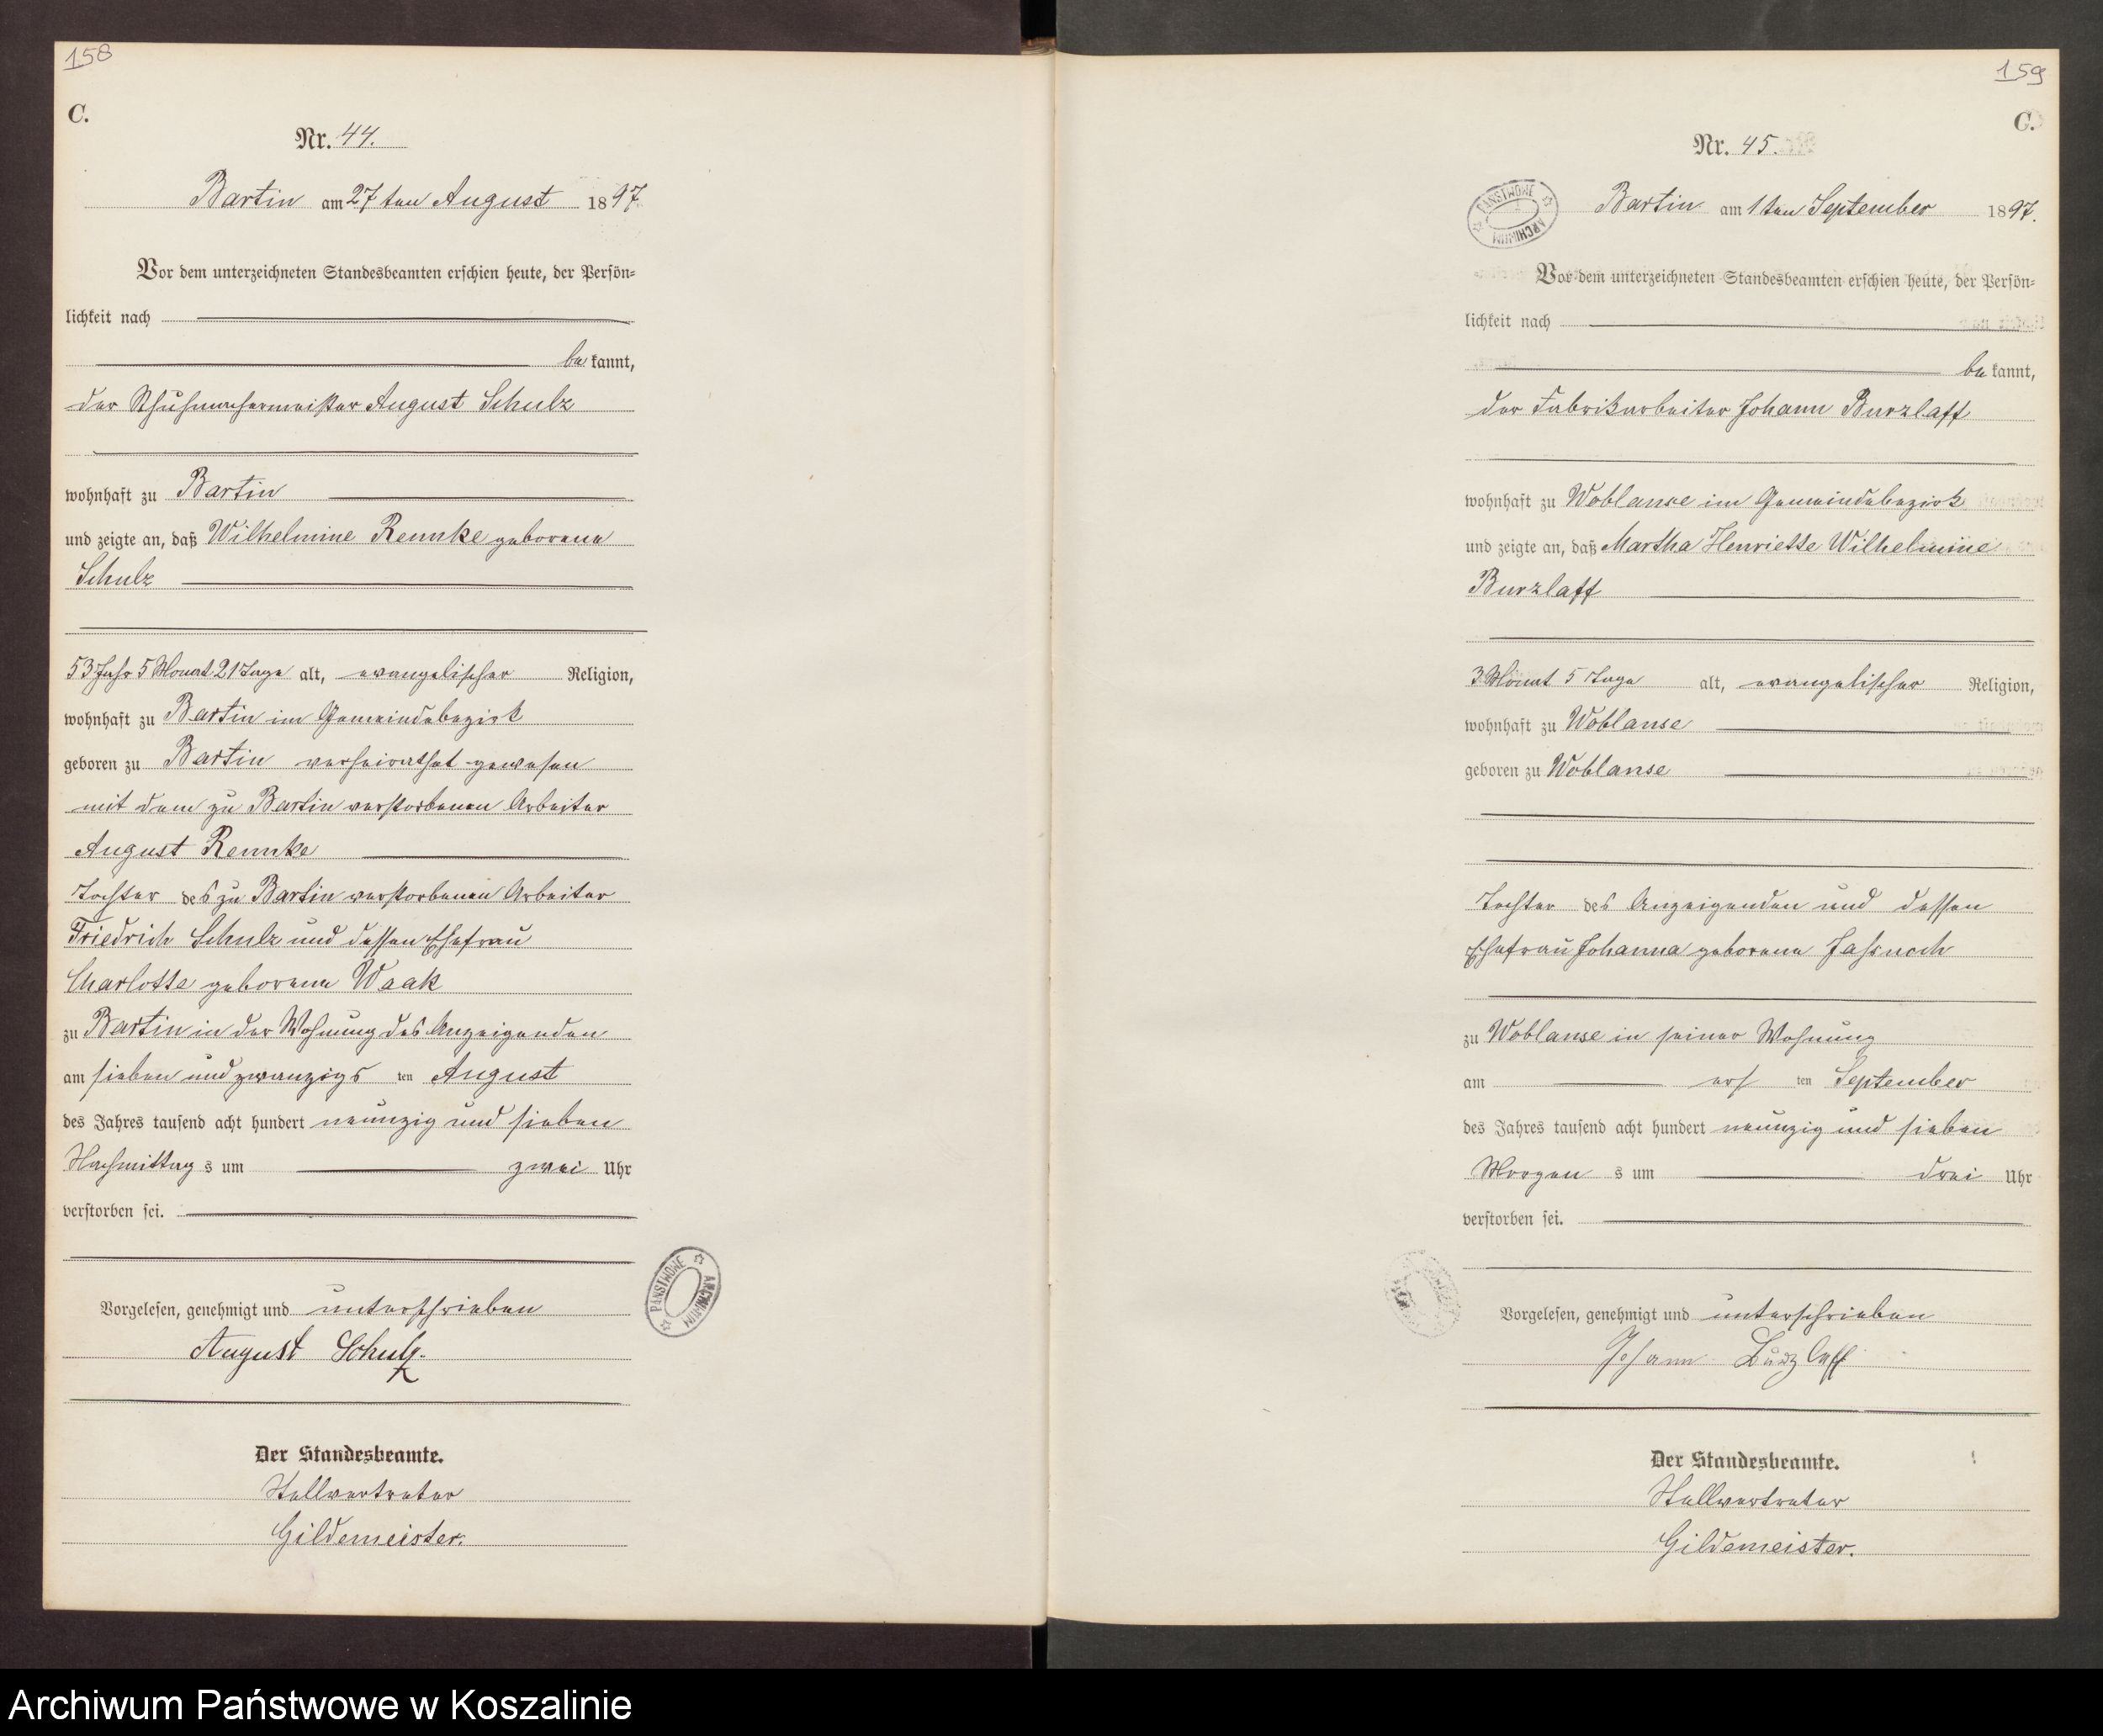 158
C.
Nr. 44.
Bartin am 27ten August 1897.
Vor dem unterzeichneten Standesbeamten erschien heute, der Persön-
lichkeit nach
be kannt,
der Schuhmachermeister August Schulz
wohnhaft zu Bartin
und zeigte an, daß Wilhelmine Rennke geborene
Schulz
53 Jahr 5 Monat 21 Tage alt, evangelischer Religion,
wohnhaft zu Bartin im Gemeindebezirk
geboren zu Bartin verheirathet gewesen
mit dem zu Bartin verstorbenen Arbeiter
August Rennke
Tochter des zu Bartin verstorbenen Arbeiter
Friedrich Schulz und dessen Ehefrau
Charlotte geborene Waak
zu Bartin in der Wohnung des Anzeigenden
am sieben und zwanzigs ten August
des Jahres tausend acht hundert neunzig und sieben
Nachmittag s um zwei Uhr
verstorben sei.
Vorgelesen, genehmigt und unterschrieben
August Schulz.
Der Standesbeamte.
Stellvertreter
Gildemeister.
PAŃSTWOWE ARCHIWUM
159
C.
Nr. 45.
PAŃSTWOWE ARCHIWUM
Bartin am 1ten September 1897.
Vor dem unterzeichneten Standesbeamten erschien heute, der Persön-
lichkeit nach
be kannt,
der Fabrikarbeiter Johann Burzlaff
wohnhaft zu Woblanse im Gemeindebezirk
und zeigte an, daß Martha Henriette Wilhelmine
Burzlaff
3 Monat 5 Tage alt, evangelischer Religion,
wohnhaft zu Woblanse
geboren zu Woblanse
Tochter des Anzeigenden und dessen
Ehefrau Johanna geborene
zu Woblanse in seiner Wohnung
am ers ten September
des Jahres tausend acht hundert neunzig und sieben
Morgen s um drei Uhr
verstorben sei.
Vorgelesen, genehmigt und unterschrieben
Johann Burzlaff
Der Standesbeamte.
Stellvertreter
Gildemeister.
Archiwum Państwowe w Koszalinie